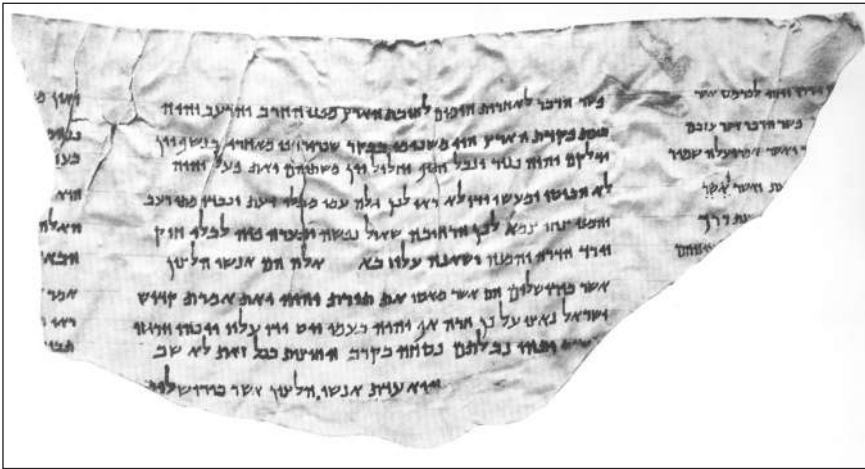 לכרמס אשר
פשר הדבר אשר עזבם
ואשר אמר ועלה שמיר
ואשר
דרך
פשר הדבר לאחרית הימים לחובת הארץ מפני החרב והרעב והיה
בעת פקדת הארץ הוי משכימי בבקר שכר ירדפו מאחרי בנשף יין
ידלקם והיה כנור ונבל ותוף וחליל יין משתיהם ואת פעל יהוה
לא הביטו ומעשי ידו לא ראו לכן גלה עמי מבלי דעת וכבדו מתי רעב
והמנו צחי צמא לכן הרחיבה שאול נפשה ופערה פיה לבלי חוק
וירד הדרה והמנה ושאנה עליז בא אלה הם אנשי הלצון
אשר בירושלים הם אשר מאסו את תורת יהוה ואת אמרת קדוש
ישראל נאצו על כן חרה אף יהוה בעמו ויט ידו עליו ויכהו וירגזו
ותהי נבלתם כסחה בקרב החוצות בכל זאת לא שב
היא עדת אנשי הלצון אשר בירושלים